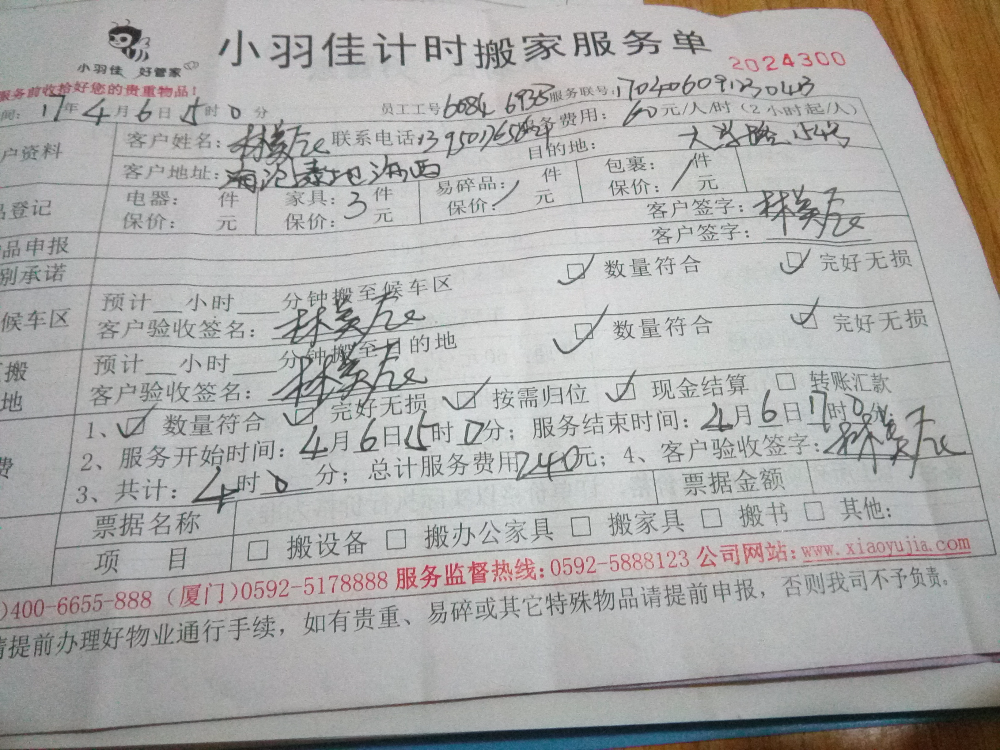 小羽佳 好管家
小羽佳计时搬家服务单
2024300
服务前收拾好您的贵重物品!
间: 17年4月6日15时0分 员工工号6084 6935 服务联号:1704060912043 服务费用: 60元/人/时(2小时起/人)
户资料 客户姓名: 林美 联系电话: 目的地: 大学路
客户地址:
品登记 电器: 件 家具: 3件 易碎品: / 件 包裹: / 件
保价: 元 保价: 元 保价: 元 保价: 元
品申报 客户签字: 林美
别承诺 客户签字: 林美
候车区 预计__小时___分钟搬至候车区 ☑ 数量符合 ☑ 完好无损
客户验收签名: 林美
搬 预计__小时___分钟搬至目的地 ☑ 数量符合 ☑ 完好无损
地 客户验收签名: 林美
1、☑ 数量符合 ☑ 完好无损 ☑ 按需归位 ☑ 现金结算 □ 转账汇款
费 2、服务开始时间: 4月6日15时0分; 服务结束时间: 4月6日17时0分;
3、共计: 4时0分; 总计服务费用240元; 4、客户验收签字: 林美
票据名称 票据金额
项 目 □ 搬设备 □ 搬办公家具 □ 搬家具 □ 搬书 □ 其他:
)400-6655-888 (厦门)0592-5178888 服务监督热线:0592-5888123 公司网站:www.xiaoyujia.com
请提前办理好物业通行手续,如有贵重、易碎或其它特殊物品请提前申报,否则我司不予负责。